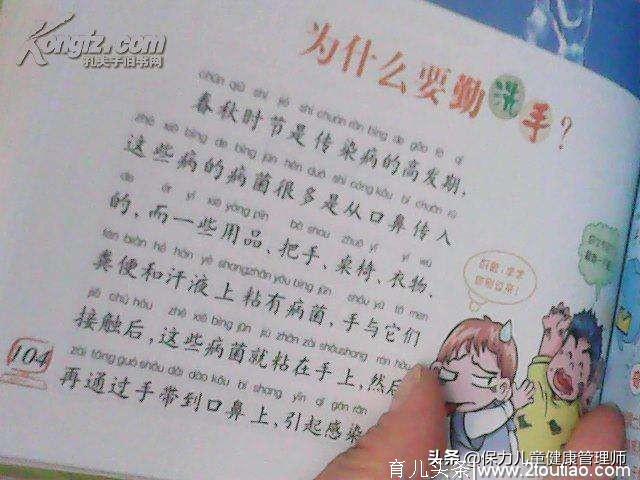 Kongfz.com
孔夫子旧书网
为什么要勤洗手?
chūn qiū shí jié shì chuán rǎn bìng de gāo fā qī
春秋时节是传染病的高发期,
zhè xiē bìng de bìng jūn hěn duō shì cóng kǒu bí chuán rù
这些病的病菌很多是从口鼻传入
de ér yì xiē yòng pǐn bǎ shou zhuō yǐ yī wù
的,而一些用品、把手、桌椅、衣物、
fèn biàn hé hàn yè shang zhān yǒu bìng jūn shǒu yǔ tā men
粪便和汗液上粘有病菌,手与它们
jiē chù hòu zhè xiē bìng jūn jiù zhān zài shǒu shang rán hòu
接触后,这些病菌就粘在手上,然后
zài tōng guò shǒu dài dào kǒu bí shang yǐn qǐ gǎn rǎn
再通过手带到口鼻上,引起感染
104
头条@保力儿童健康管理师
育儿头条 www.21outiao.com